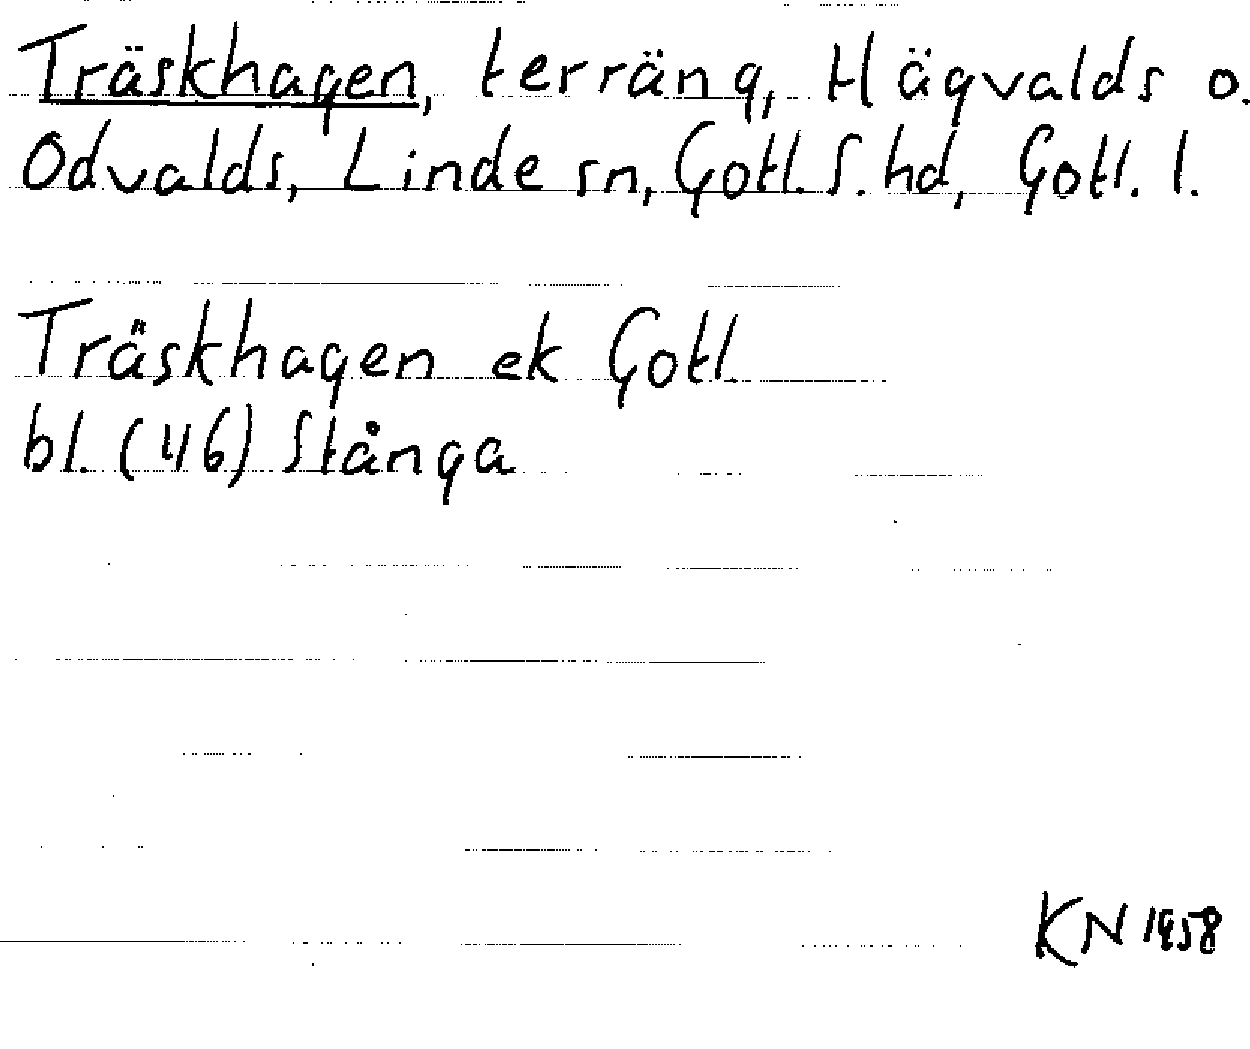 Träskhagen, terräng, Hägvalds o.
Odvalds, Linde sn, Gotl. S. hd, Gotl. l.
Träskhagen ek Gotl.
bl. (46) Stånga
KN 1958